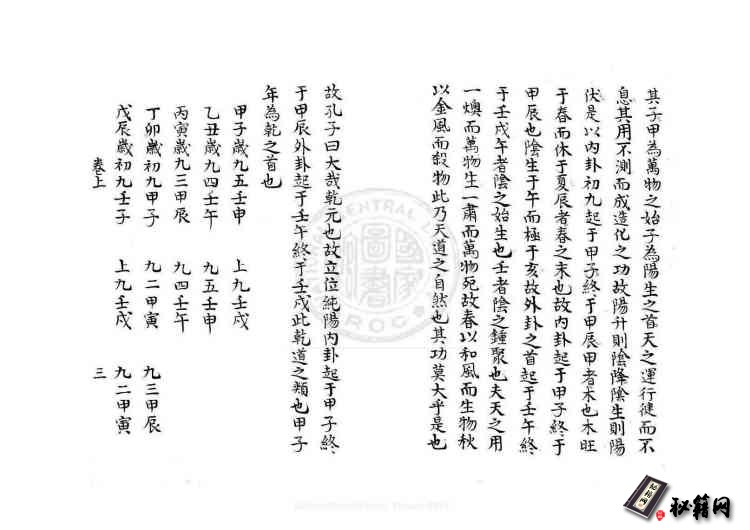 其子甲為萬物之始子為陽生之首天之運行徤而不
息其用不測而成造化之功故陽升則陰降陰生則陽
伏是以內卦初九起于甲子終于甲辰甲者木也木旺
于春而休于夏辰者春之末也故內卦起于甲子終于
甲辰也陰生于午而極于亥故外卦之首起于壬午終
于壬戌午者陰之始生也壬者陰之鍾聚也夫天之用
一燠而萬物生一肅而萬物死故春以和風而生物秋
以金風而殺物此乃天道之自然也其功莫大乎是也
故孔子曰大哉乾元也故立位純陽內卦起于甲子終
于甲辰外卦起于壬午終于壬戌此乾道之類也甲子
年為乾之首也
甲子歲九五壬申 上九壬戌
乙丑歲九四壬午 九五壬申
丙寅歲九三甲辰 九四壬午
丁卯歲初九甲子 九二甲寅 九三甲辰
戊辰歲初九壬子 上九壬戌 九二甲寅
卷上 三
秘籍网